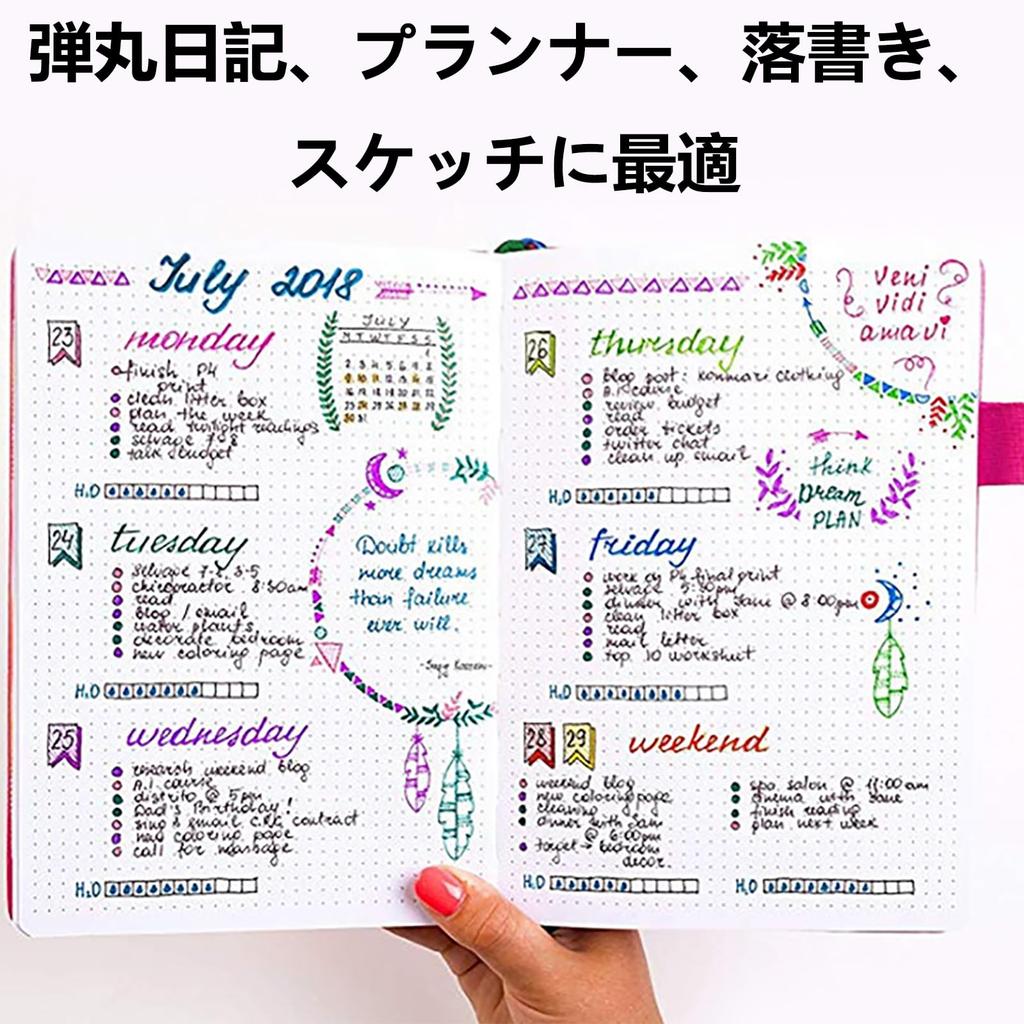 弾丸日記、プランナー、落書き、
スケッチに最適
July 2018
23
monday
finish P4
print
clean litter box
plan the week
read twilight readings
selvage 7-8
talk budget
H2O
JULY
M T W T F S S
1
2 3 4 5 6 7 8
9 10 11 12 13 14 15
16 17 18 19 20 21 22
23 24 25 26 27 28 29
30 31
24
tuesday
selvage 7-8, 3-5
chiropractor 8:30am
read
blog / email
water plants
decorate bedroom
new coloring page
H2O
Doubt kills
more dreams
than failure
ever will.
25
wednesday
research weekend blog
A.I. course
distrito @ 5pm
Dad's Birthday!
sing & email contract
new coloring page
call for massage
H2O
26
thursday
blog post: konmari clothing
A.I. course
review budget
read
order tickets
twitter chat
clean up email
H2O
veni
vidi
amavi
think
Dream
PLAN
27
friday
work on P4 final print
selvage 5:30pm
dinner with Jane @ 8:00pm
clean litter box
read
mail letter
top 10 worksheet
H2O
28 29
weekend
weekend blog
new coloring page
cleaning day
dinner with Sam
@ 6:00pm
target → bedroom
decor.
H2O
spa salon @ 11:00am
cinema with Jane
finish reading
plan next week
H2O